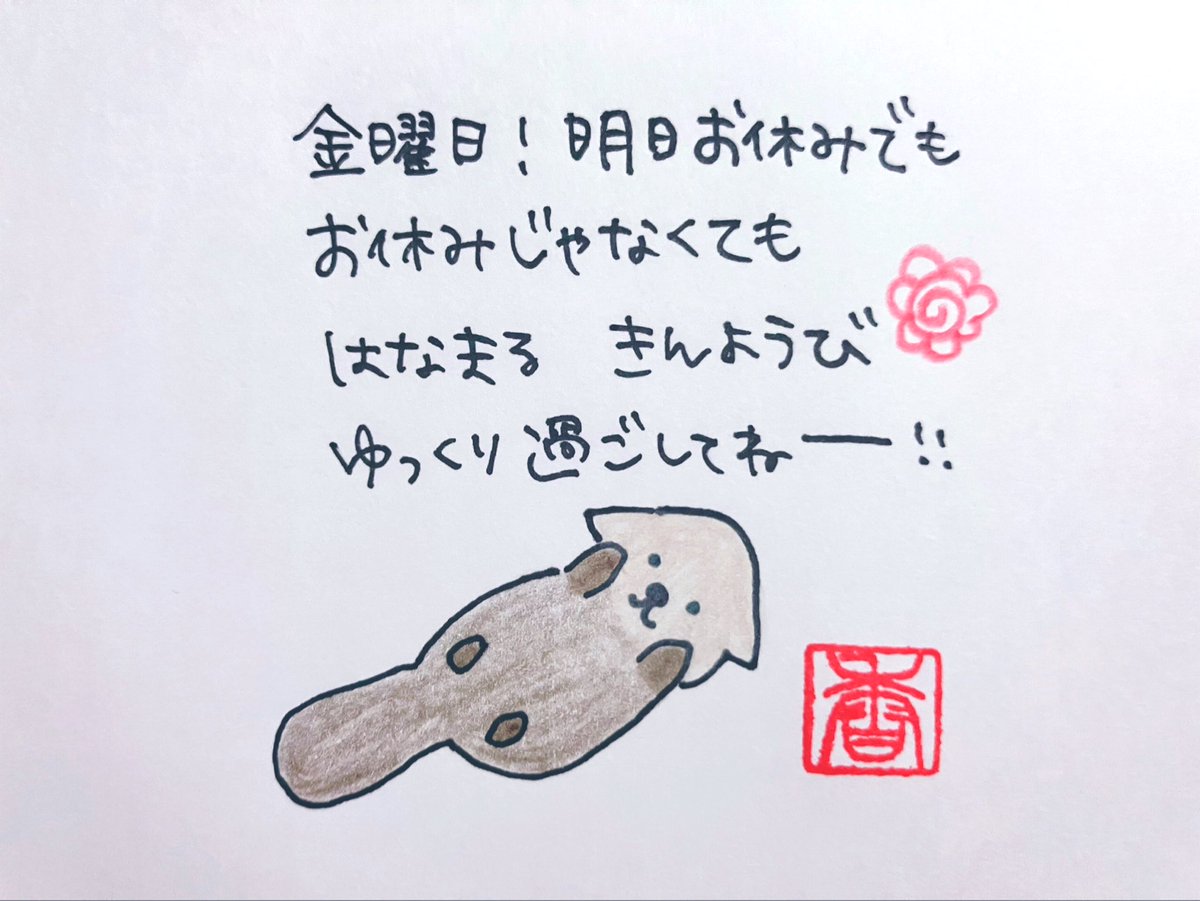 金曜日！明日お休みでも
お休みじゃなくても
はなまる　きんようび
ゆっくり過ごしてねー!!
香